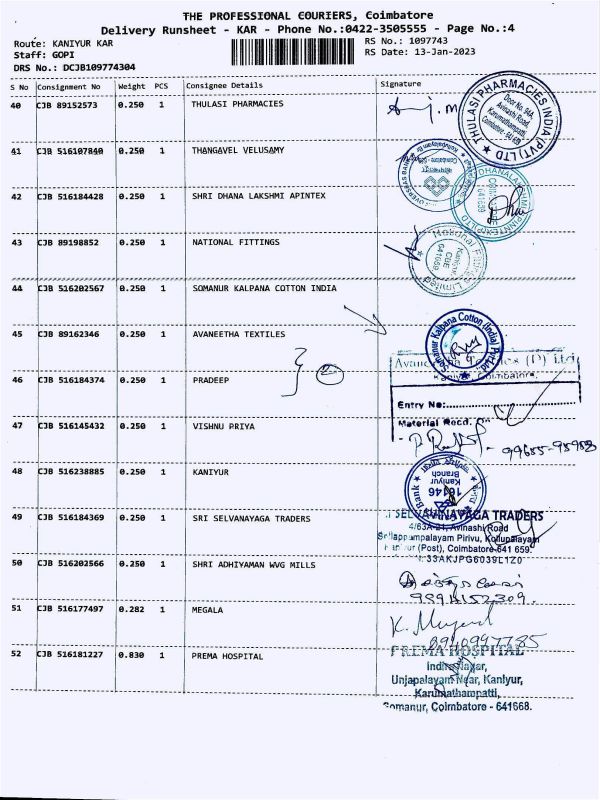 THE PROFESSIONAL COURIERS, Coimbatore
Delivery Runsheet - KAR - Phone No.:0422-3505555 - Page No.:4
Route: KANIYUR KAR
RS No.: 1097743
Staff: GOPI
RS Date: 13-Jan-2023
DRS No.: DCJB109774304
S No Consignment No Weight PCS Consignee Details Signature
40 CJB 89152573 0.250 1 THULASI PHARMACIES
THULASI PHARMACIES INDIA (P) LTD
Door No. 94A,
Avinashi Road,
Karumathampatti,
Coimbatore - 641 659
41 CJB 516107840 0.250 1 THANGAVEL VELUSAMY
42 CJB 516184428 0.250 1 SHRI DHANA LAKSHMI APINTEX
43 CJB 89198852 0.250 1 NATIONAL FITTINGS
National Fittings Limited
Kaniyur
CBE
641059
44 CJB 516202567 0.250 1 SOMANUR KALPANA COTTON INDIA
Somanur Kalpana Cotton (India) Pvt Ltd.
45 CJB 89162346 0.250 1 AVANEETHA TEXTILES
(P) Ltd
Kaniyur, Coimbatore.
46 CJB 516184374 0.250 1 PRADEEP
2
Entry No:
Material Recd. On
47 CJB 516145432 0.250 1 VISHNU PRIYA
48 CJB 516238885 0.250 1 KANIYUR
Bank
Kaniyur
Branch
16146
49 CJB 516184369 0.250 1 SRI SELVANAYAGA TRADERS
SELVAVINAYAGA TRADERS
4/63A-21, Avinashi Road
Sellappampalayam Pirivu, Kollupalayam
(Post), Coimbatore-641 659.
33AKJPG6039L1Z0
50 CJB 516202566 0.250 1 SHRI ADHIYAMAN WVG MILLS
51 CJB 516177497 0.282 1 MEGALA
52 CJB 516181227 0.830 1 PREMA HOSPITAL
PREMA HOSPITAL
Indira Nagar,
Unjapalayam Near, Kaniyur,
Karumathampatti,
Somanur, Coimbatore - 641668.